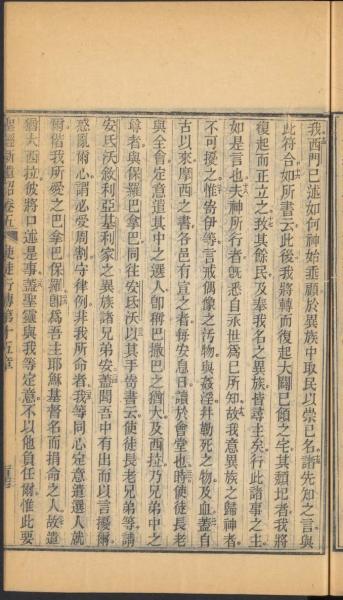 我西門已述如何神始垂顧於異族中取民以崇已名諸先知之言與
此符合如所書云此後我將轉而復起大闢已傾之宅其頹圯者我將
復起而正立之致其餘民及奉我名之異族皆尋主矣行此諸事之主
如是言也夫神所行者既悉自永世為已所知故我意異族之歸神者
不可擾之惟書伊等言戒偶像之汚物與姦淫并勒死之物及血蓋自
古以來摩西之書各邑有宣之者每安息日讀於會堂也時使徒長老
與全會定意遣其中之選人即稱巴撒巴之猶大及西拉乃兄弟中之
尊者與保羅巴拿巴同往安氐沃以其手書云使徒長老兄弟等請
安氐沃敘利亞基利家之異族諸兄弟安蓋聞吾中有出而以言擾爾
惑亂爾心謂必受周割守律例非我所命者我等同心定意遣選人就
爾偕我所愛之巴拿巴保羅即為吾主耶穌基督名而捐命之人故遣
猶大西拉彼將口述是事蓋聖靈與我等定意不以他負任爾惟此要
聖經新遺詔卷五 使徒行傳第十五章